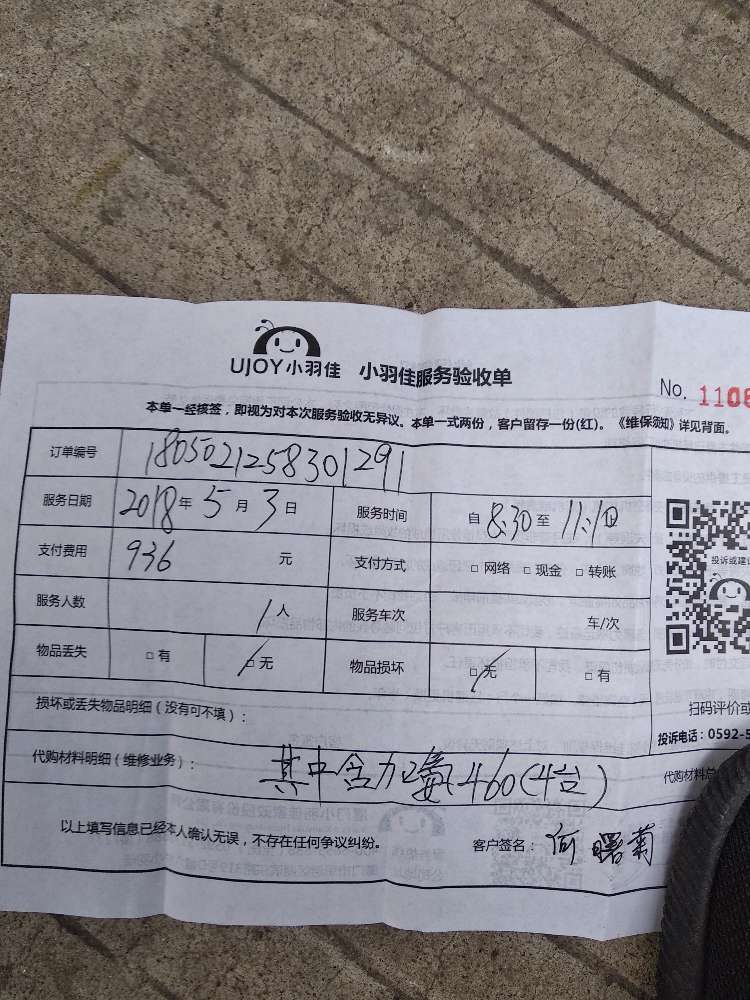 UJOY小羽佳 小羽佳服务验收单
No. 1108
本单一经核签，即视为对本次服务验收无异议。本单一式两份，客户留存一份(红)。《维保须知》详见背面。
订单编号 1805021258301291
服务日期 2018年5月3日 服务时间 自8:30至11:10止
支付费用 936 元 支付方式 □ 网络 □ 现金 □ 转账
投诉或建议
服务人数 1人 服务车次 车/次
物品丢失 □ 有 □ 无 物品损坏 □ 无 □ 有
扫码评价或
损坏或丢失物品明细（没有可不填）：
投诉电话：0592-5
代购材料明细（维修业务）： 其中含加氟460(4台)
代购材料总
以上填写信息已经本人确认无误，不存在任何争议纠纷。 客户签名：何曙菊